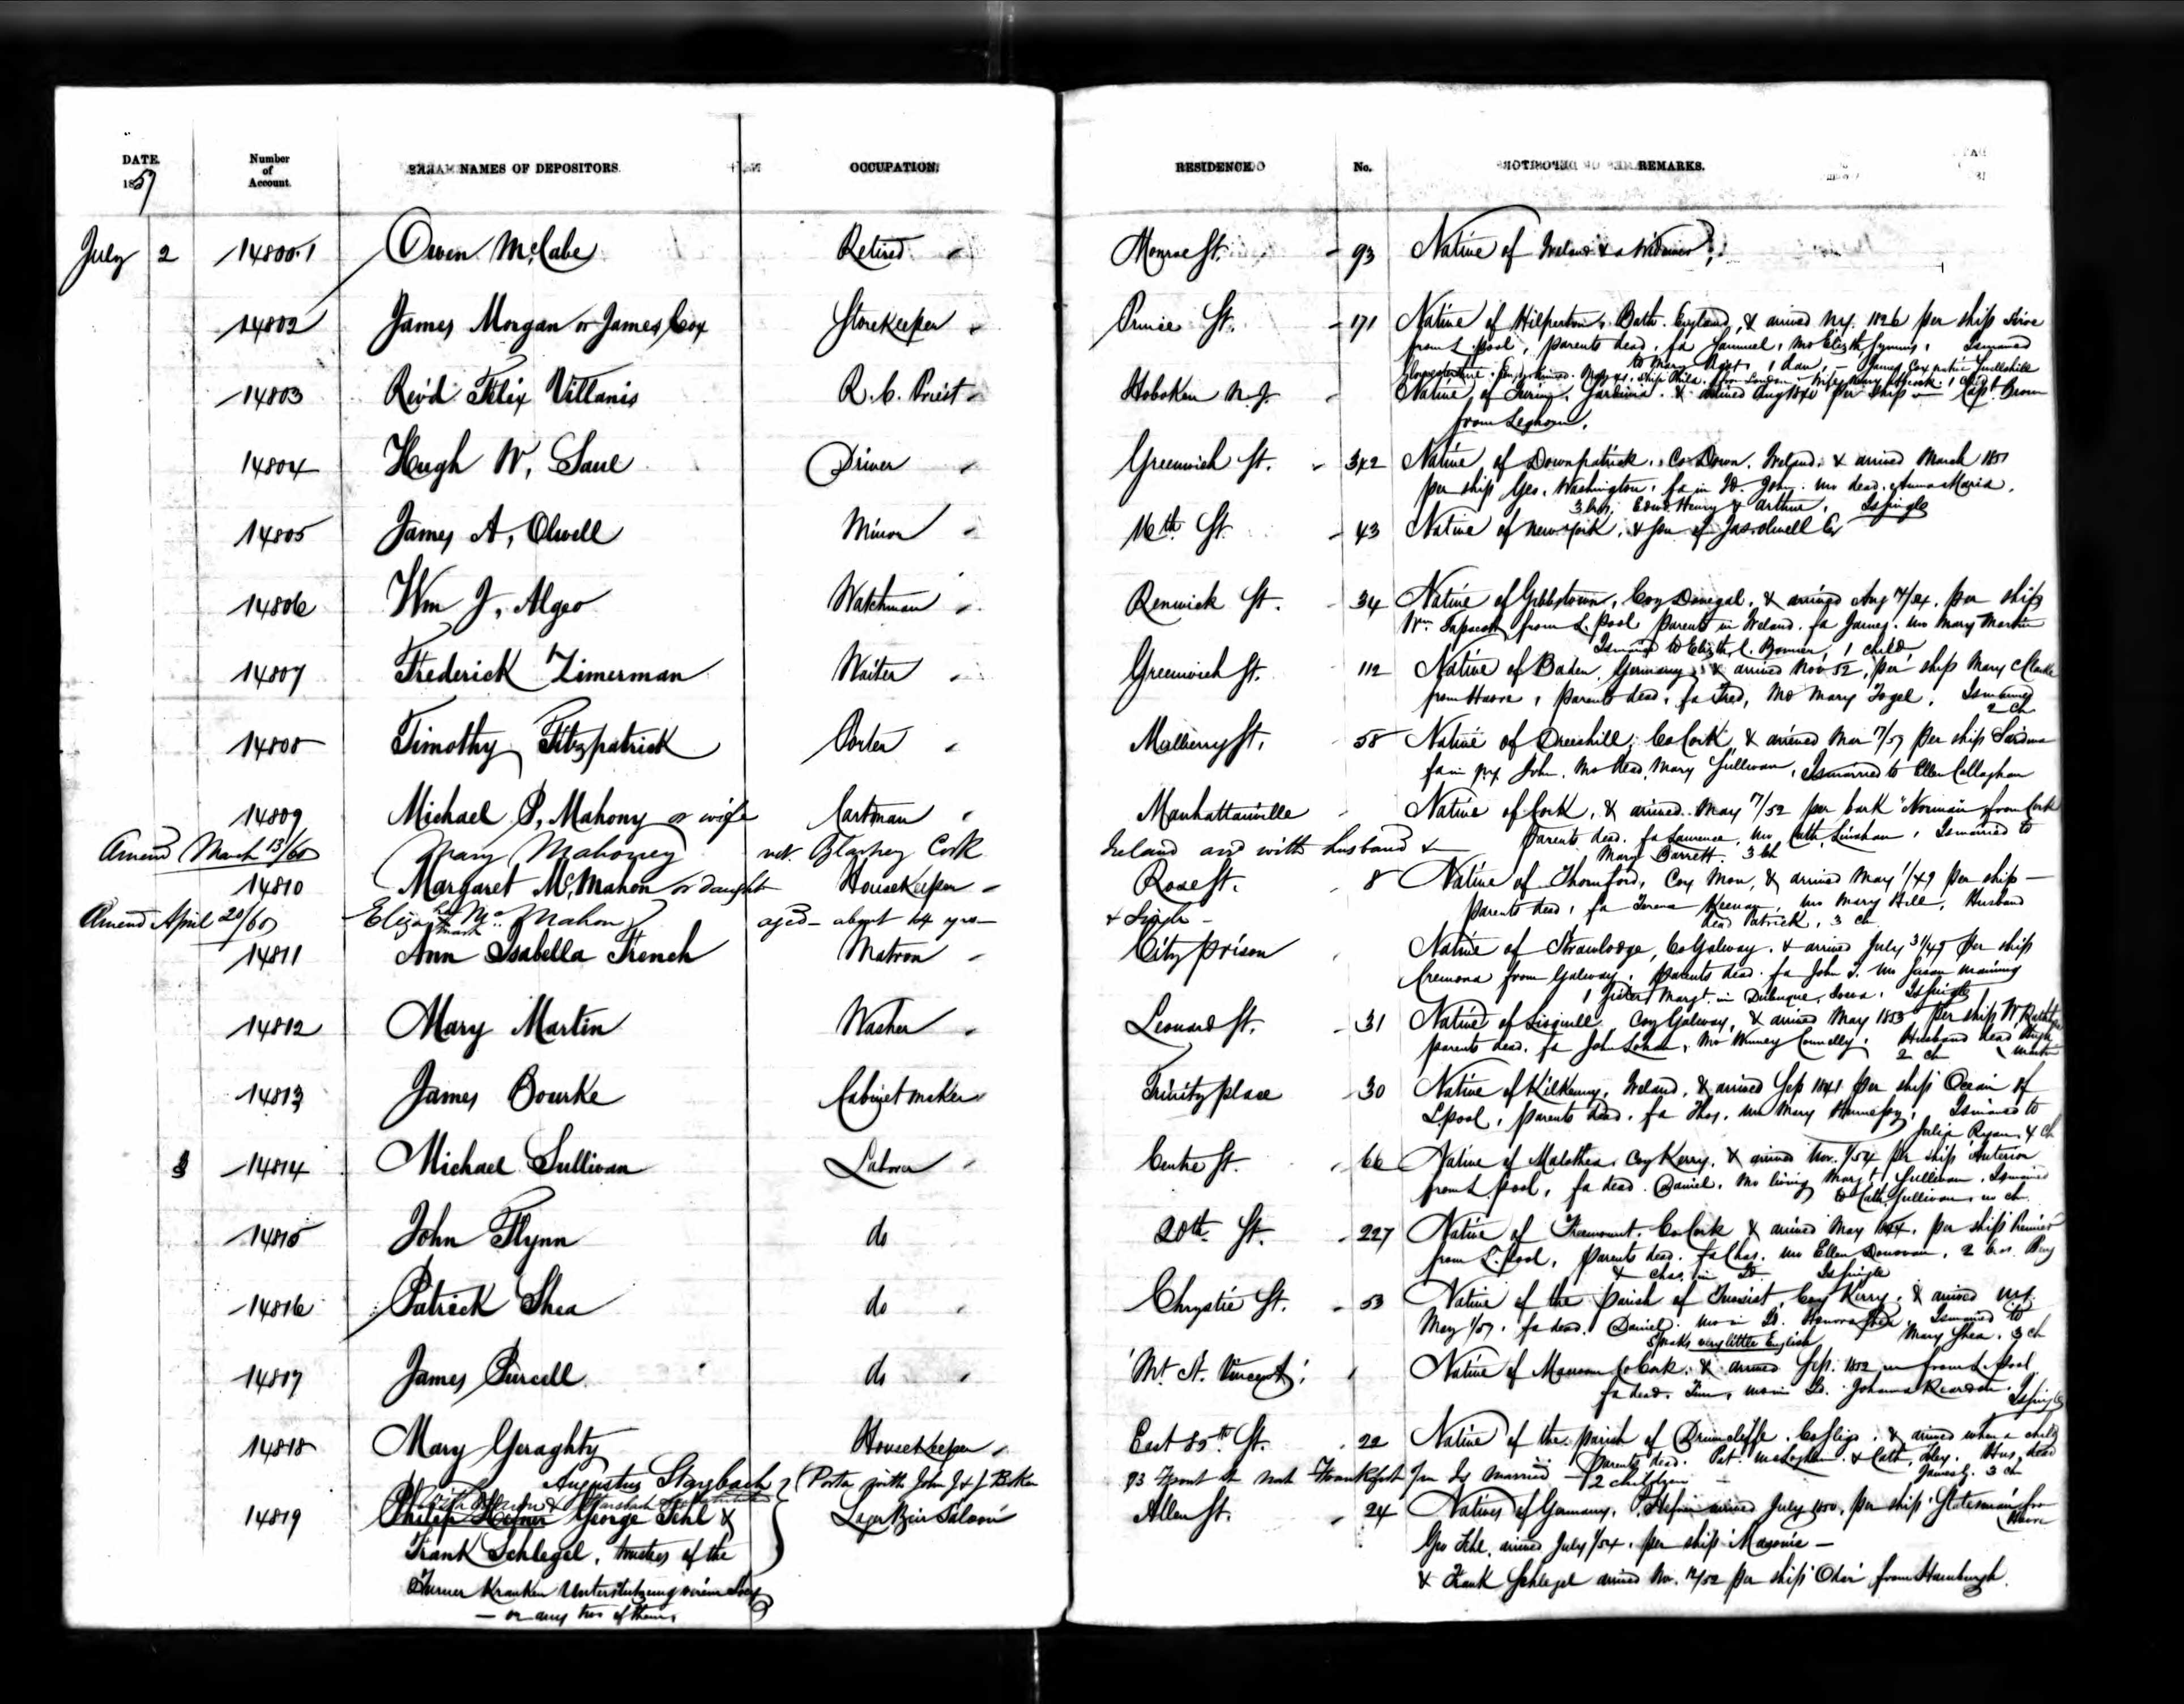 DATE. Number of Account. NAMES OF DEPOSITORS. OCCUPATION. RESIDENCE. No. REMARKS.
1857
July 2 14801 Owen McCabe Retired Monroe St. 93 Native of Ireland & a Widower
14802 James Morgan or James Cox Storekeeper Prince St. 171 Native of Hilperton, Bath. England, & arrived N.Y. 1826 per ship
from L.pool, parents dead, fa Samuel, mo Elizth Is married
to Mary 1 dau, – James Cox native
14803 Rev'd Felix Villanis R. C. Priest Hoboken N.J. Native of Turin, Sardinia. & arrived Aug 1840 per ship — Capt. Brown
from Leghorn.
14804 Hugh W. Saul Driver Greenwich St. 342 Native of Downpatrick, Co Down. Ireland. & arrived March 1851
per ship Geo. Washington. fa in Id. John. mo dead. Anna Maria.
3 bros, Edwd Henry & Arthur. Is single
14805 James A. Olwell Minor 16th St. 43 Native of New York, & son of Jas. Olwell Esq
14806 Wm J. Algeo Watchman Renwick St. 34 Native of Gibbstown, Coy Donegal, & arrived Aug 7/54. per ship
Wm Tapscott from L.pool parents in Ireland. fa James. mo Mary Martin
Is married to Elizth C. 1 child
14807 Frederick Zimerman Waiter Greenwich St. 112 Native of Baden, Germany, & arrived Nov 52, per ship Mary
from Havre, parents dead, fa Fred, mo Mary Is married
2 ch
14808 Timothy Fitzpatrick Porter Mulberry St. 58 Native of Co Cork, & arrived Mar 7/57 per ship
fa in N.Y. John. Mo dead, Mary Sullivan, Is married to Ellen Callaghan
14809 Michael P. Mahony or wife Cartman Manhattanville Native of Cork, & arrived May 7/52 per bark "Norman" from Cork
Parents dead. fa Lawrence, mo Cath. Linehan, Is married to
Mary Barrett. 3 ch
Amend March 13/60 Mary Mahoney nat. Cork Ireland and with husband &
14810 Margaret McMahon or daught Housekeeper Rose St. 8 Native of Coy Mon, & arrived May 1/49 per ship —
parents dead, fa Keenan, mo Mary Hill, Husband
dead Patrick, 3 ch
Amend April 20/60 Eliza her mark McMahon aged – about 14 yrs – & Single –
14811 Ann Isabella French Matron City prison Native of Co Galway. & arrived July 31/49 per ship
Cremona from Galway. parents dead. fa John
1 sister Margt. in Dubuque, Iowa. Is single
14812 Mary Martin Washer Leonard St. 31 Native of Coy Galway, & arrived May 1853 per ship
parents dead. fa John mo Winney Connelly. Husband dead Hugh Martin
2 ch
14813 James Bourke Cabinet maker Trinity place 30 Native of Kilkenny, Ireland, & arrived Sep 1841 per ship Ocean of
L.pool, parents dead. fa Thos, mo Mary Hennessy, Is married to
Julia Ryan, 4 ch
14814 Michael Sullivan Laborer Centre St. 66 Native of Coy Kerry. & arrived Nov. 1/54 per ship
from L.pool, fa dead. Daniel, mo living Margt Sullivan. Is married
to Cath. Sullivan, no ch
14815 John Flynn do 20th St. 227 Native of Co Cork & arrived May per ship
from L.pool, parents dead. fa Chas. mo Ellen Donovan, 2 bros.
& Chas in Id. Is single
14816 Patrick Shea do Chrystie St. 53 Native of the parish of Coy Kerry. & arrived N.Y.
May 1/57. fa dead. Daniel. mo in Id. Honora Shea. Is married to
Speaks very little English Mary Shea. 3 ch
14817 James Purcell do Mt. St. Vincent Native of Co Cork. & arrived Sep. 1852 from L.pool
fa dead. Tim, mo in Id. Johanna Reardon. Is single
14818 Mary Geraghty Housekeeper East 85th St. 22 Native of the parish of Drumcliffe. Co Sligo. & arrived when a child
parents dead. Pat & Cath. Hus. dead
3 ch
Augustus Starsbach (Porter with John J & J 93 Front St nat Frankfort Is married – 2 children
14819 Philip Hefner George Fehl & Lager Bier Saloon Allen St. 24 Natives of Germany, arrived July 1850, per ship Statesman from Havre
Frank Schlegel, trustees of the Geo Fehl, arrived July 1/54, per ship —
Turner Kranken Unterstutzung verein Socy & Frank Schlegel arrived Nov. 1/52 per ship from Hamburgh.
— or any two of them